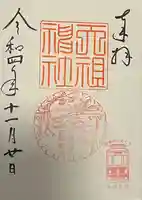 奉拝
天祖
神社
令和四年十一月廿日